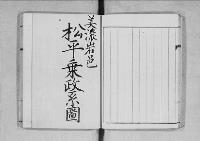 美濃岩邑
松平乗政系圖